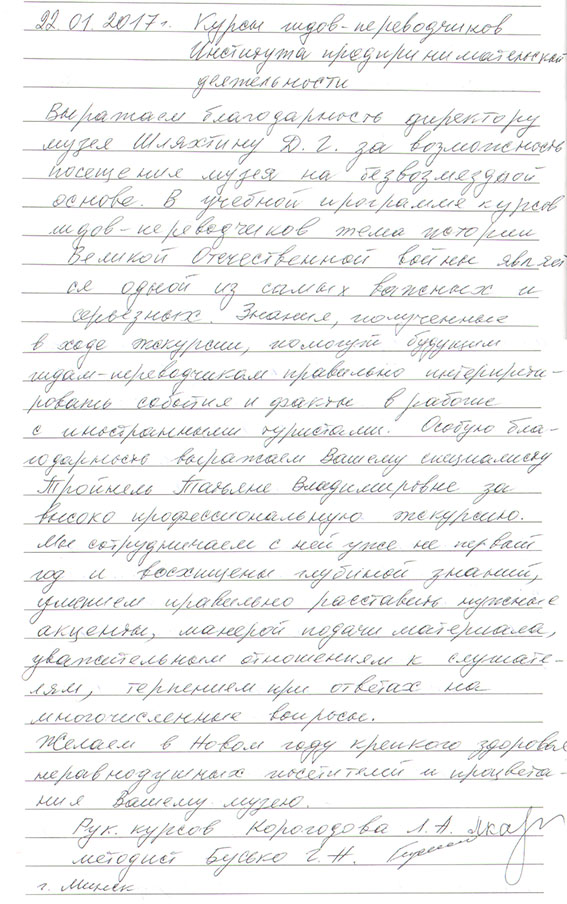 22.01.2017г. Курсы гидов-переводчиков
Института предпринимательской
деятельности
Выражаем благодарность директору
музея Шляхтину Д. Г. за возможность
посещения музея на безвозмездной
основе. В учебной программе курсов
гидов-переводчиков тема истории
Великой Отечественной войны являет
ся одной из самых важных и
серьезных. Знания, полученные
в ходе экскурсии, помогут будущим
гидам-переводчикам правильно интерпрети-
ровать события и факты в работе
с иностранными туристами. Особую бла-
годарность выражаем Вашему специалисту
Тройнель Татьяне Владимировне за
высоко профессиональную экскурсию.
Мы сотрудничаем с ней уже не первый
год и восхищены глубиной знаний,
умением правильно расставить нужные
акценты, манерой подачи материала,
уважительным отношением к слушате-
лям, терпением при ответах на
многочисленные вопросы.
Желаем в Новом году крепкого здоровья
неравнодушных посетителей и процвета-
ния Вашему музею.
Рук. курсов Корогодова Л. А.
методист Бусько Г. Н.
г. Минск